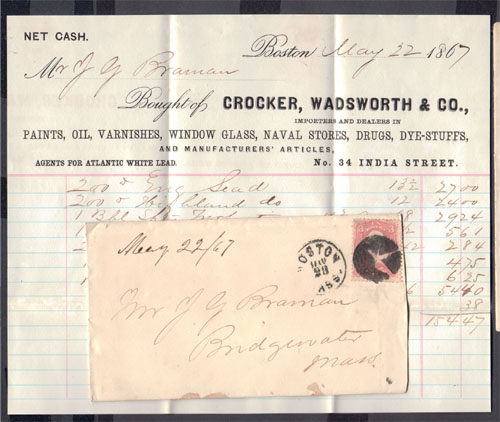 NET CASH.
Boston May 22 1867
Mr J G Braman
Bought of CROCKER, WADSWORTH & CO.,
IMPORTERS AND DEALERS IN
PAINTS, OIL, VARNISHES, WINDOW GLASS, NAVAL STORES, DRUGS, DYE-STUFFS,
AND MANUFACTURERS' ARTICLES,
AGENTS FOR ATLANTIC WHITE LEAD. No. 34 INDIA STREET.
200 Eng Lead 13½ 27 00
200 Highland do 12 24 00
1 Bbl 29 24
5 61
2 84
4 75
6 35
54 40
38
154 47
May 22/67
BOSTON
MAY
MASS.
Mr J G Braman
Bridgewater
Mass.